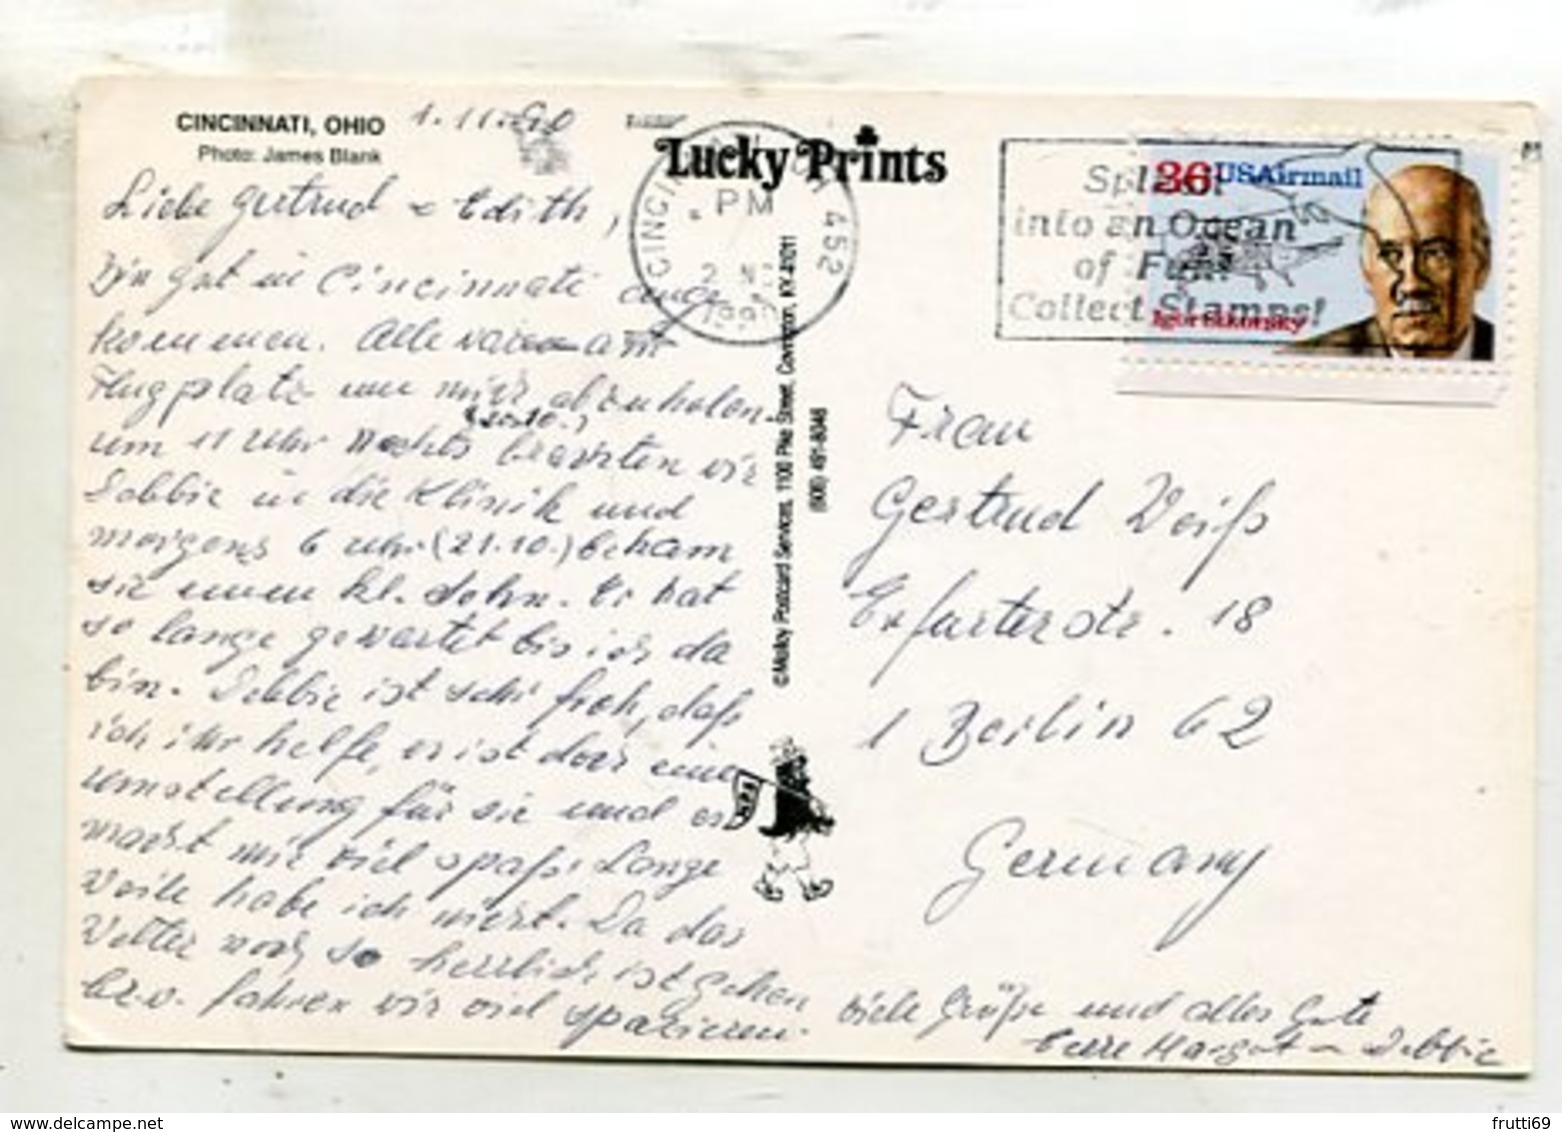 CINCINNATI, OHIO
Photo: James Blank
1.11.90
Liebe Gertrud u Edith,
Bin gut in Cincinnati ange
kommen. Alle waren am
Flugplatz um mich abzuholen.
(20.10.)
um 11 Uhr Nachts brachten wir
Debbie in die Klinik und
morgens 6 Uhr (21.10.) bekam
sie einen kl. Sohn. Er hat
so lange gewartet bis ich da
bin. Debbie ist sehr froh, daß
ich ihr helfe, es ist doch eine
Umstellung für sie und es
macht mir viel Spaß. Lange
Weile habe ich nicht. Da das
Wetter noch so herrlich ist gehen
bz.w. fahren wir viel spazieren.
Viele Grüße und alles Gute
Eure Margot u Debbie
Lucky Prints
©Molloy Postcard Services, 1100 Pike Street, Covington, KY 41011
(606) 491-8046
CINCINNATI OH 452
PM
2 N
1990
Splash!
into an Ocean
of Fun!
Collect Stamps!
36 USAirmail
Igor Sikorsky
Frau
Gertrud Weiß
Erfurterstr. 18
1 Berlin 62
Germany
frutti69